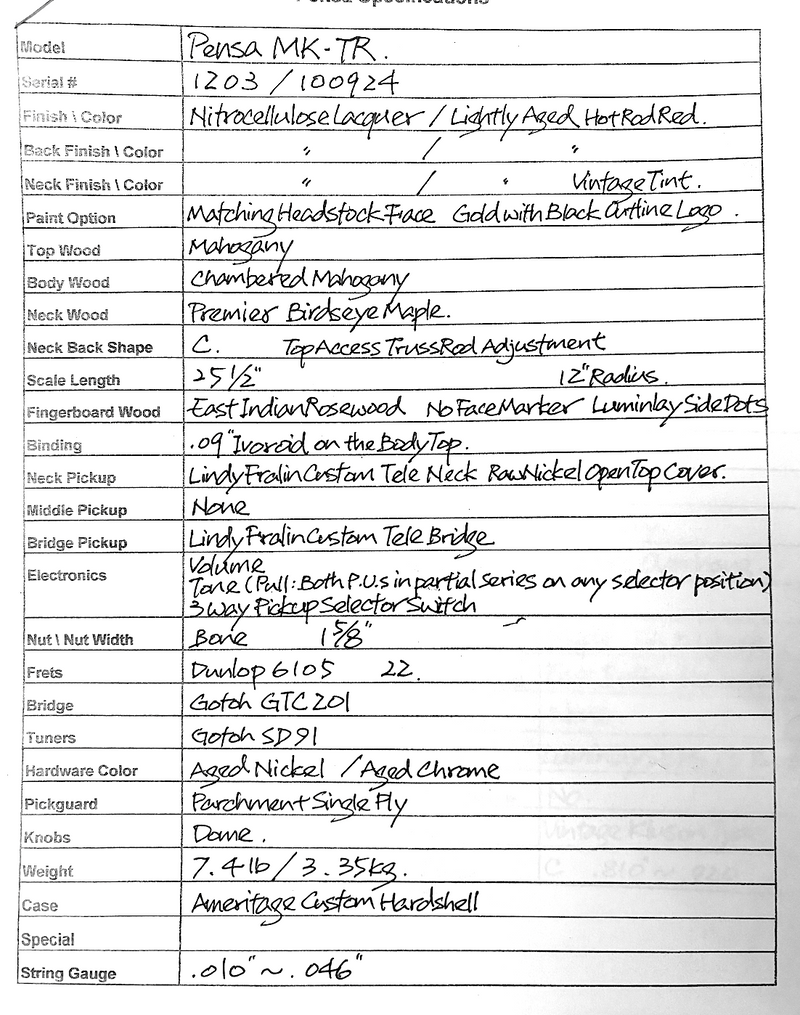 Pensa Specifications
Model Pensa MK-TR.
Serial # 1203 / 100924
Finish \ Color Nitrocellulose Lacquer / Lightly Aged Hot Rod Red.
Back Finish \ Color " / "
Neck Finish \ Color " / " Vintage Tint.
Paint Option Matching Headstock Face Gold with Black Outline Logo.
Top Wood Mahogany
Body Wood Chambered Mahogany
Neck Wood Premier Birdseye Maple.
Neck Back Shape C. Top Access Truss Rod Adjustment
Scale Length 25 1/2" 12" Radius.
Fingerboard Wood East Indian Rosewood No Face Marker Luminlay Side Dots
Binding .09" Ivoroid on the Body Top.
Neck Pickup Lindy Fralin Custom Tele Neck Raw Nickel Open Top Cover.
Middle Pickup None
Bridge Pickup Lindy Fralin Custom Tele Bridge
Electronics Volume
Tone (Pull: Both P.U.s in partial series on any selector position)
3 way Pickup Selector Switch
Nut \ Nut Width Bone 1 5/8"
Frets Dunlop 6105 22.
Bridge Gotoh GTC 201
Tuners Gotoh SD91
Hardware Color Aged Nickel / Aged Chrome
Pickguard Parchment Single Ply
Knobs Dome.
Weight 7.4 lb / 3.35kg.
Case Ameritage Custom Hardshell
Special
String Gauge .010" ~ .046"